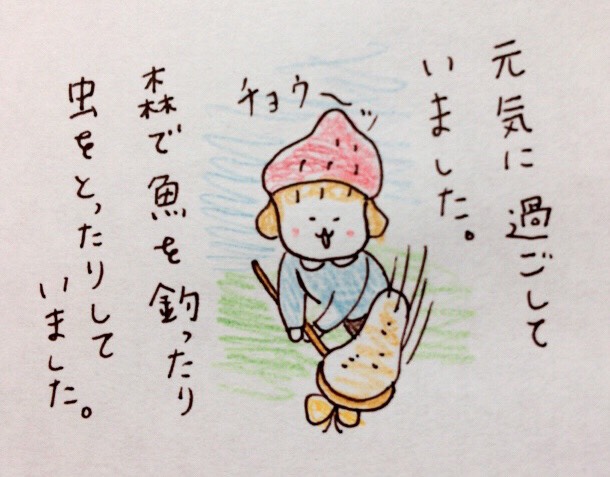 元気に過ごして
いました。
チョウ〜ッ
森で魚を釣ったり
虫をとったりして
いました。